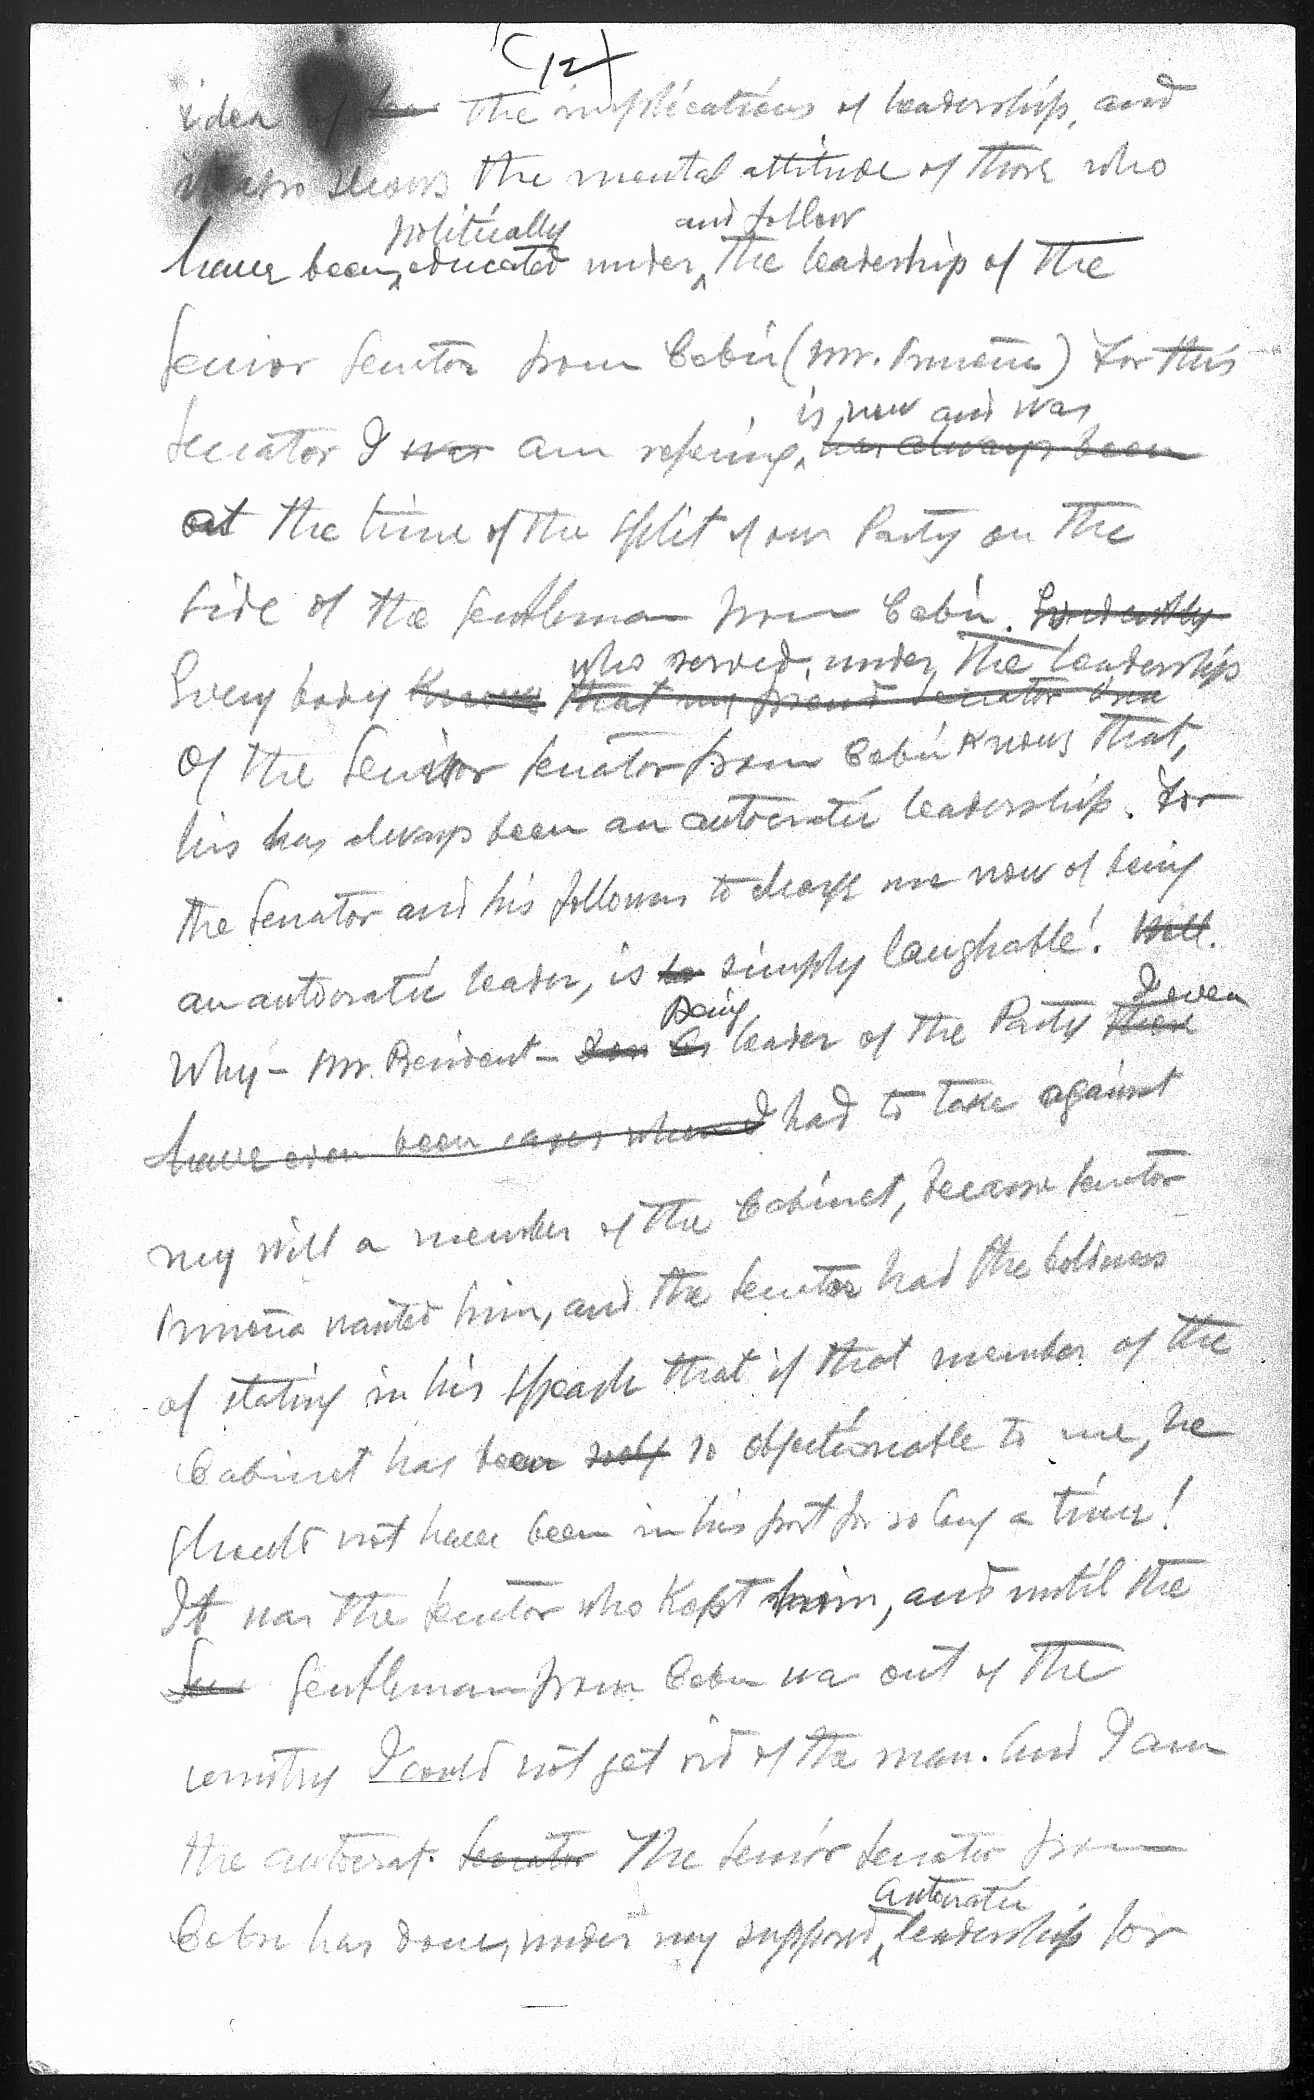 (12)
idea of the implications of leadership, and
it also shows the mental attitude of those who
politically and follow
have been educated under the leadership of the
Senior Senator from Cebú (Mr. Osmeña) For this
is now and was
Senator I was am refering, has always been
at the time of the split of our Party on the
side of the gentleman from Cebú. Evidently
who served under the leadership
Every body knows that my friend Senator
of the Senior Senator from Cebú knows that,
his has always been an autocratic leadership. For
the Senator and his followers to charge me now of being
an autocratic leader, is to simply laughable! Will.
Being I even
Why - Mr. President - as leader of the Party there
have even been cases when I had to take against
my will a member of the Cabinet, because Senator
Osmeña wanted him, and the Senator had the boldness
of stating in his speach that if that member of the
Cabinet has been so objectionable to me, he
should not have been in his post for so long a time!
It was the Senator who kept him, and until the
Sen gentleman from Cebu wa out of the
country I could not get rid of the man. And I am
the autocrat. Senator The senior Senator from
autocratic
Cebu has done, under my supposed leadership for